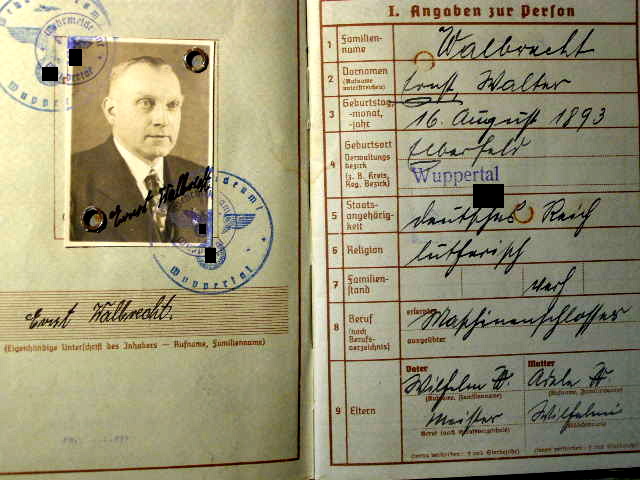 Wehrmeldeamt
Wuppertal
Ernst Walbrecht
Wuppertal
Ernst Walbrecht.
(Eigenhändige Unterschrift des Inhabers — Rufname, Familienname)
I. Angaben zur Person
1 Familienname Walbrecht
2 Vornamen (Rufname unterstreichen) Ernst Walter
3 Geburtstag, -monat, -jahr 16. August 1893
4 Geburtsort Verwaltungsbezirk (z. B. Kreis, Reg. Bezirk) Elberfeld
Wuppertal
5 Staatsangehörigkeit deutsches Reich
6 Religion lutherisch
7 Familienstand verh
8 Beruf (nach Berufsverzeichnis) erlernter Maschinenschlosser
ausgeübter
9 Eltern
Vater Mutter
Wilhelm W. Adele W.
(Rufname, Familienname) (Rufname, Familienname)
Meister
Beruf (nach Berufsverzeichnis) (Mädchenname)